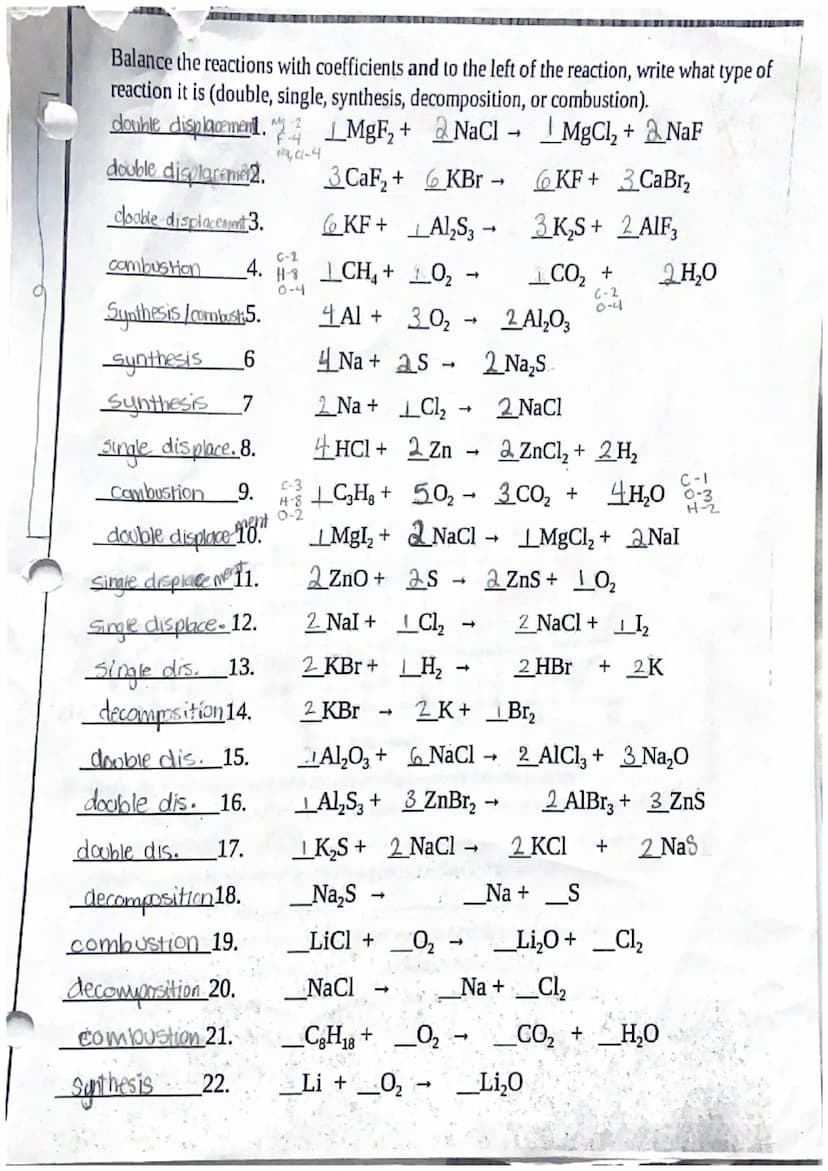 Balance the reactions with coefficients and to the left of the reaction, write what type of
reaction it is (double, single, synthesis, decomposition, or combustion).
double displacement. 1 MgF₂ + 2 NaCl → 1 MgCl₂ + 2 NaF
F-4
Na, Cl-4
double displacement 2. 3 CaF₂ + 6 KBr → 6 KF + 3 CaBr₂
double displacement 3. 6 KF + 1 Al₂S₃ → 3 K₂S + 2 AlF₃
combustion 4. 1 CH₄ + 1 O₂ → 1 CO₂ + 2 H₂O
H-8
O-4
O-4
Synthesis/combust. 5. 4 Al + 3 O₂ → 2 Al₂O₃
synthesis 6 4 Na + 2 S → 2 Na₂S
synthesis 7 2 Na + 1 Cl₂ → 2 NaCl
single displace. 8. 4 HCl + 2 Zn → 2 ZnCl₂ + 2 H₂
combustion 9. C-3 H-8 O-2 1 C₃H₈ + 5 O₂ → 3 CO₂ + 4 H₂O C-1 O-3 H-2
double displacement 10. 1 MgI₂ + 2 NaCl → 1 MgCl₂ + 2 NaI
single displacement 11. 2 ZnO + 2 S → 2 ZnS + 1 O₂
single displace. 12. 2 NaI + 1 Cl₂ → 2 NaCl + 1 I₂
single dis. 13. 2 KBr + 1 H₂ → 2 HBr + 2 K
decomposition 14. 2 KBr → 2 K + 1 Br₂
double dis. 15. 1 Al₂O₃ + 6 NaCl → 2 AlCl₃ + 3 Na₂O
double dis. 16. 1 Al₂S₃ + 3 ZnBr₂ → 2 AlBr₃ + 3 ZnS
double dis. 17. 1 K₂S + 2 NaCl → 2 KCl + 2 NaS
decomposition 18. _Na₂S → _Na + _S
combustion 19. _LiCl + _O₂ → _Li₂O + _Cl₂
decomposition 20. _NaCl → _Na + _Cl₂
combustion 21. _C₈H₁₈ + _O₂ → _CO₂ + _H₂O
synthesis 22. _Li + _O₂ → _Li₂O